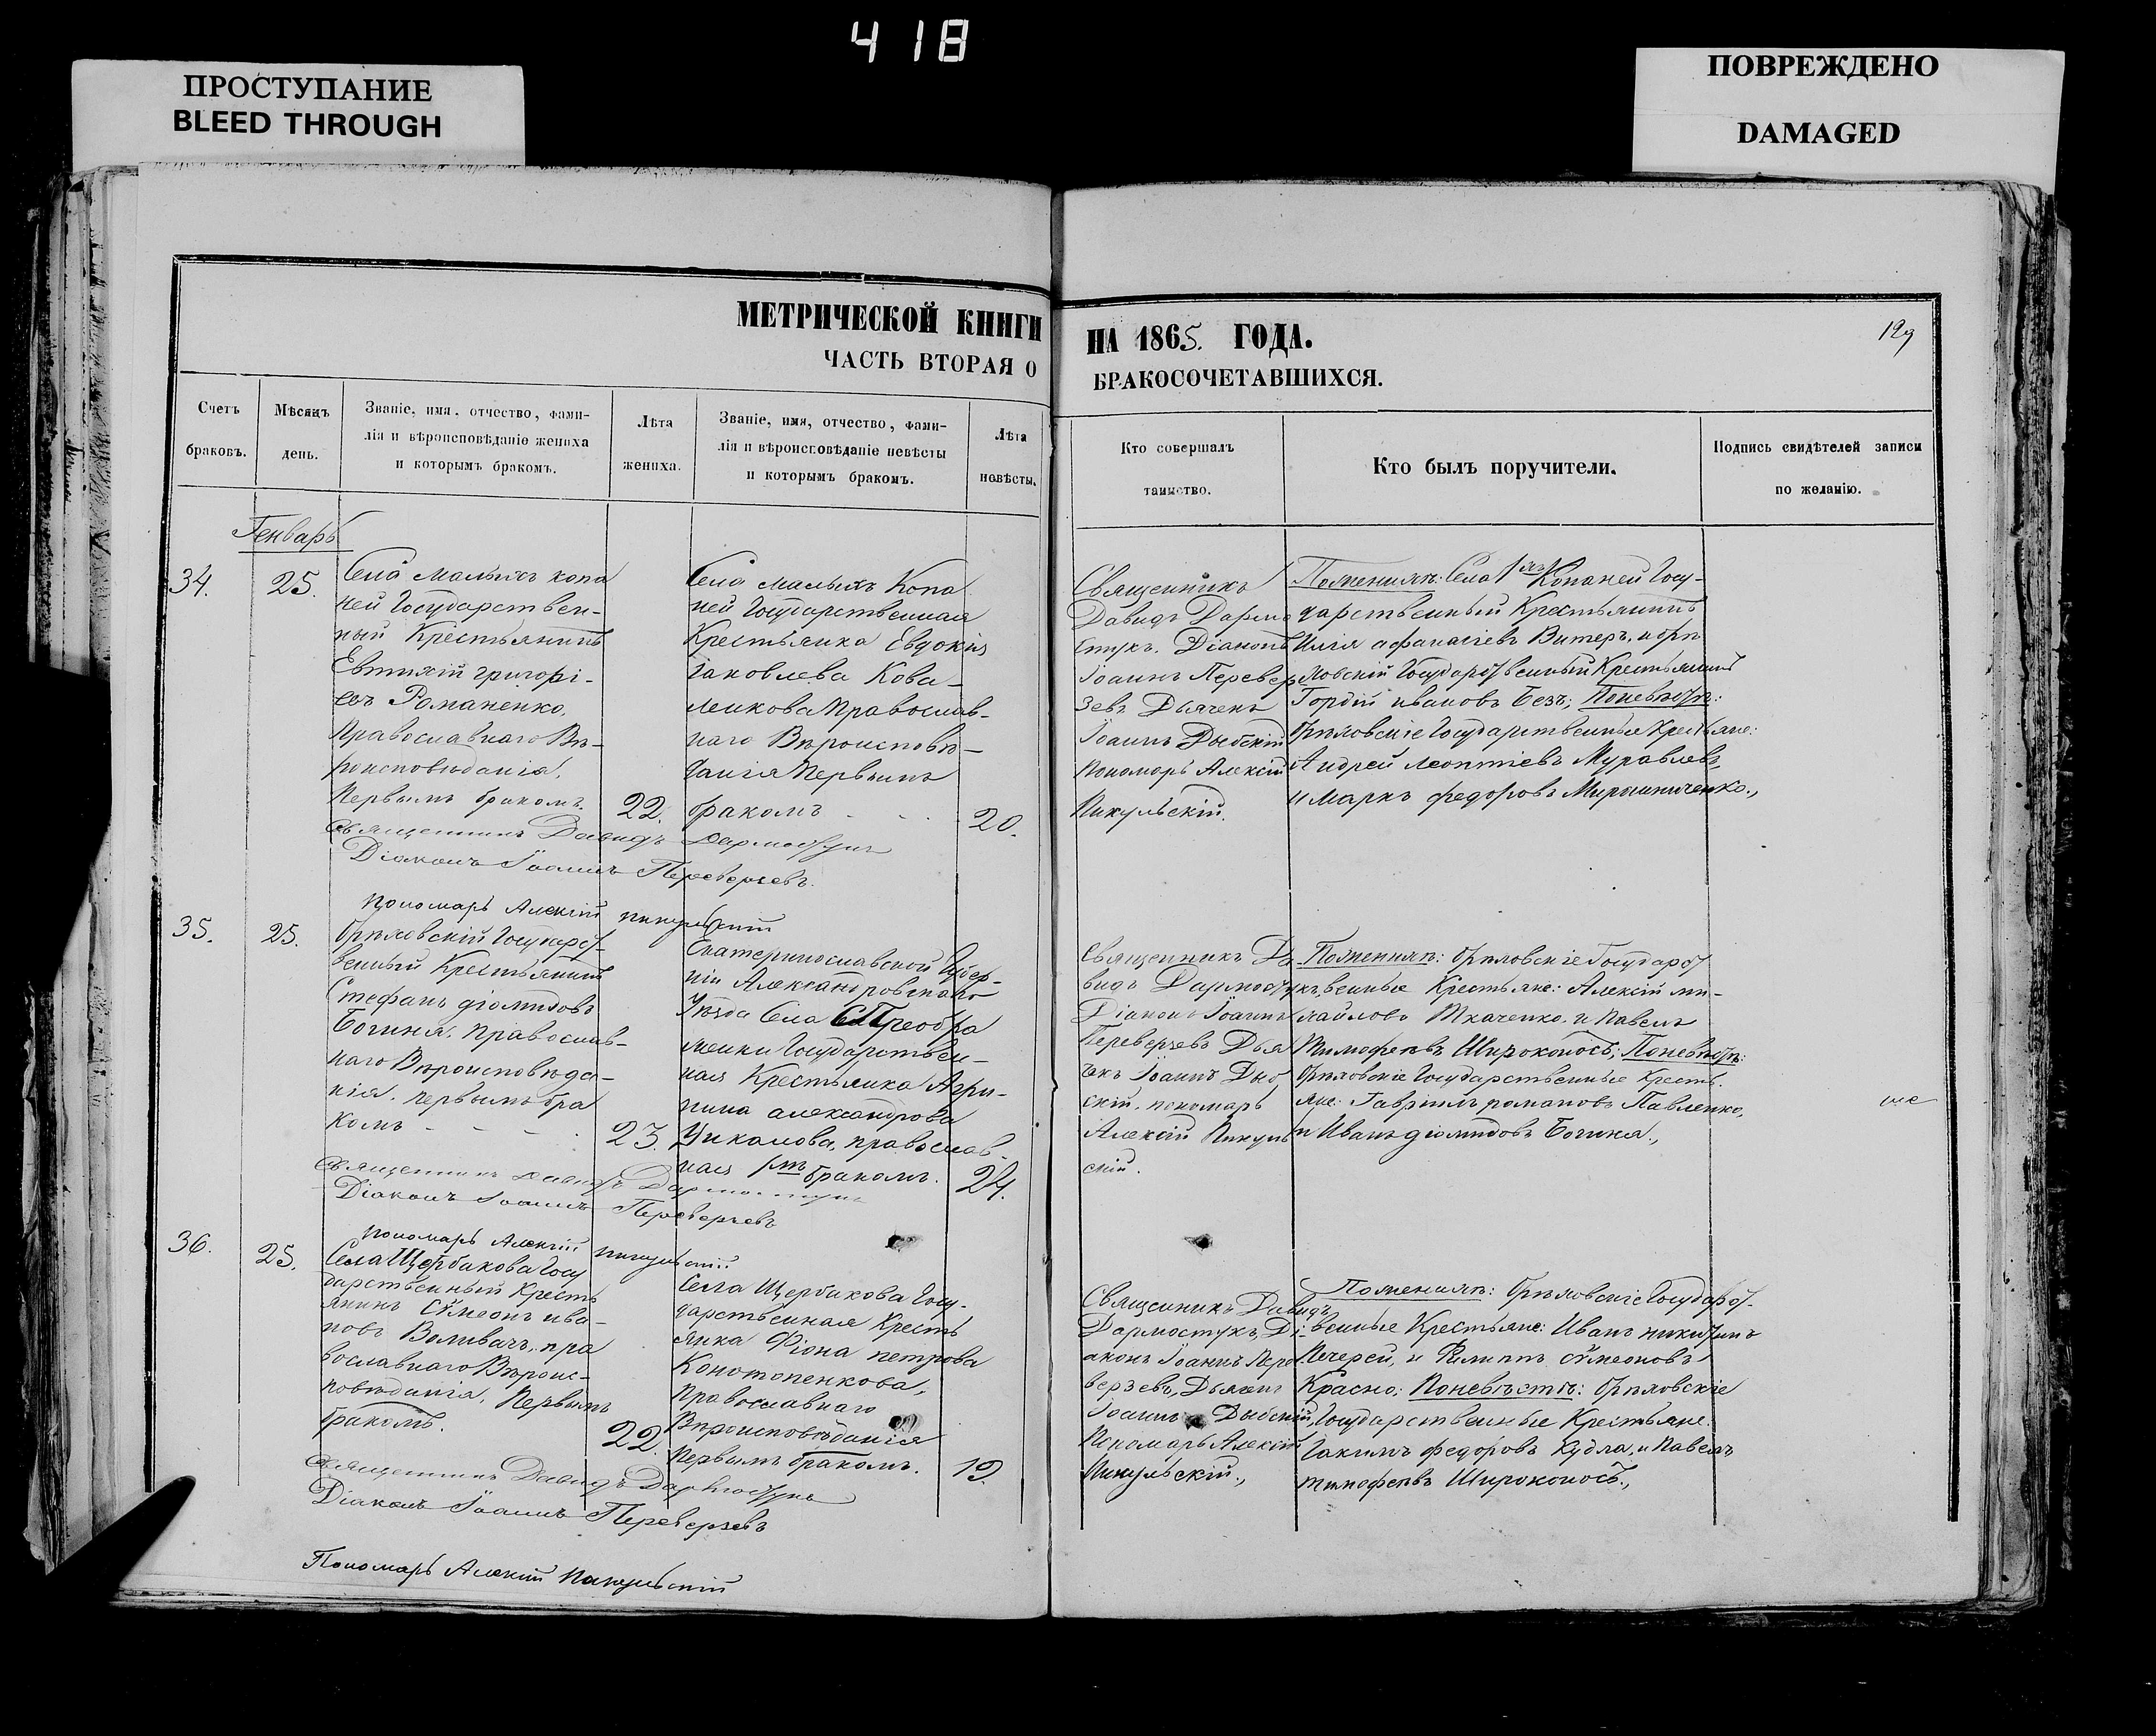 418
ПРОСТУПАНИЕ
BLEED THROUGH
ПОВРЕЖДЕНО
DAMAGED
МЕТРИЧЕСКОЙ КНИГИ НА 1865. ГОДА.
ЧАСТЬ ВТОРАЯ О БРАКОСОЧЕТАВШИХСЯ.
129
Счетъ
браковъ.
Мѣсяцъ
день.
Званіе, имя, отчество, фами-
лія и вѣроисповѣданіе жениха
и которымъ бракомъ.
Лѣта
жениха.
Званіе, имя, отчество, фами-
лія и вѣроисповѣданіе невѣсты
и которымъ бракомъ.
Лѣта
невѣсты.
Кто совершалъ
таинство.
Кто былъ поручители.
Подпись свидѣтелей записи
по желанію.
Генварь
34.
25.
Села малыхъ копа
ней Государствен-
ный Крестьянинъ
Евтихій григорі-
евъ Романенко,
Православнаго Вѣ-
роисповѣданія,
Первымъ бракомъ.
22.
Села малыхъ Копа
ней Государственная
Крестьянка Евдокія
Іаковлева Кова-
ленкова Православ-
наго Вѣроисповѣ-
данія Первымъ
бракомъ
20.
Священникъ
Давидъ Дармо
стукъ. Діаконъ
Іоаннъ Перевер
зевъ Дьячекъ
Іоаннъ Дыбскій
Пономарь Алексій
Пикульскій.
Поженихѣ: Села Копаней Госу-
дарственный Крестьянинъ
Илія афанасіевъ Витеръ, и
Государственный Крестьянинъ
Гордій ивановъ Безъ; Поневѣстѣ:
Государственные Крестьяне:
Андрей Леонтіевъ Муравлевъ,
и Маркъ федоровъ Мирошниченко.,
Священникъ Давидъ Дармостукъ
Діаконъ Іоаннъ Переверзевъ.
Пономарь Алексій Пикульскій
35.
25.
Государст-
венный Крестьянинъ
Стефанъ діомидовъ
Богиня, Православ-
наго Вѣроисповѣда-
нія. первымъ бра
комъ
23.
Екатеринославской Губер-
ніи Александровскаго
Уѣзда Села Преобра
женки Государствен-
ная Крестьянка Агри-
пина александрова
православ-
ная бракомъ.
24.
Священникъ Да
видъ Дармостукъ,
Діаконъ Іоаннъ
Переверзевъ Дья
чекъ Іоаннъ Дыб
скій, пономарь
Алексій Пикуль
скій.
Поженихѣ: Государст
венные Крестьяне: Алексій ми-
хайловъ Ткаченко, и Павелъ
Тимофеевъ Широконосъ; Поневѣстѣ:
Государственные Кресть
яне: Гавріилъ романовъ Павленко,
и Иванъ діомидовъ Богиня.,
Священникъ Давидъ Дармостукъ
Діаконъ Іоаннъ Переверзевъ
Пономарь Алексій Пикульскій
36.
25.
Села Щербакова Госу
дарственный Кресть
янинъ Сѵмеонъ ива-
новъ пра
вославнаго Вѣроис-
повѣданія, Первымъ
бракомъ.
22.
Села Щербакова Госу-
дарственная Кресть
янка Фіона петрова
Конотопенкова,
Православнаго
Вѣроисповѣданія
Первымъ бракомъ.
19.
Священникъ Давидъ
Дармостукъ, Ді-
аконъ Іоаннъ Пере
верзевъ, Дьячекъ
Іоаннъ Дыбскій,
Пономарь Алексій
Пикульскій.,
Поженихѣ: Государст-
венные Крестьяне: Иванъ никитинъ
Печерей, и Филиппъ сѵмеоновъ
Красно; Поневѣстѣ:
Государственные Крестьяне:
Іакимъ федоровъ Кудла, и Павелъ
тимофеевъ Широконосъ.,
Священникъ Давидъ Дармостукъ
Діаконъ Іоаннъ Переверзевъ
Пономарь Алексій Пикульскій